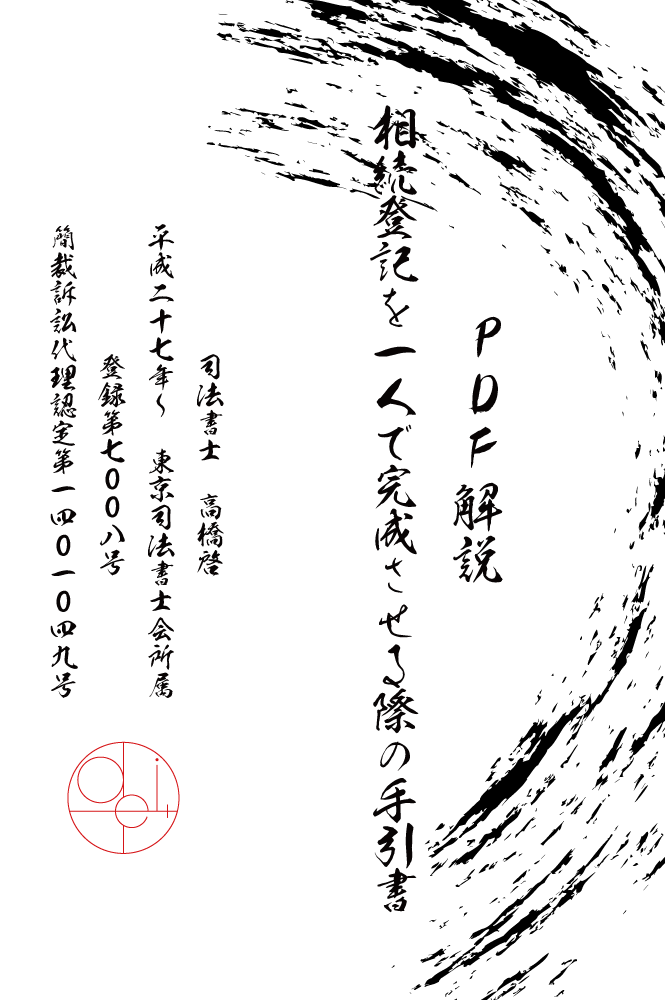 PDF解説
相続登記を一人で完成させる際の手引書
司法書士　高橋啓
平成二十七年～　東京司法書士会所属
登録第七〇〇八号
簡裁訴訟代理認定第一四〇一〇四九号